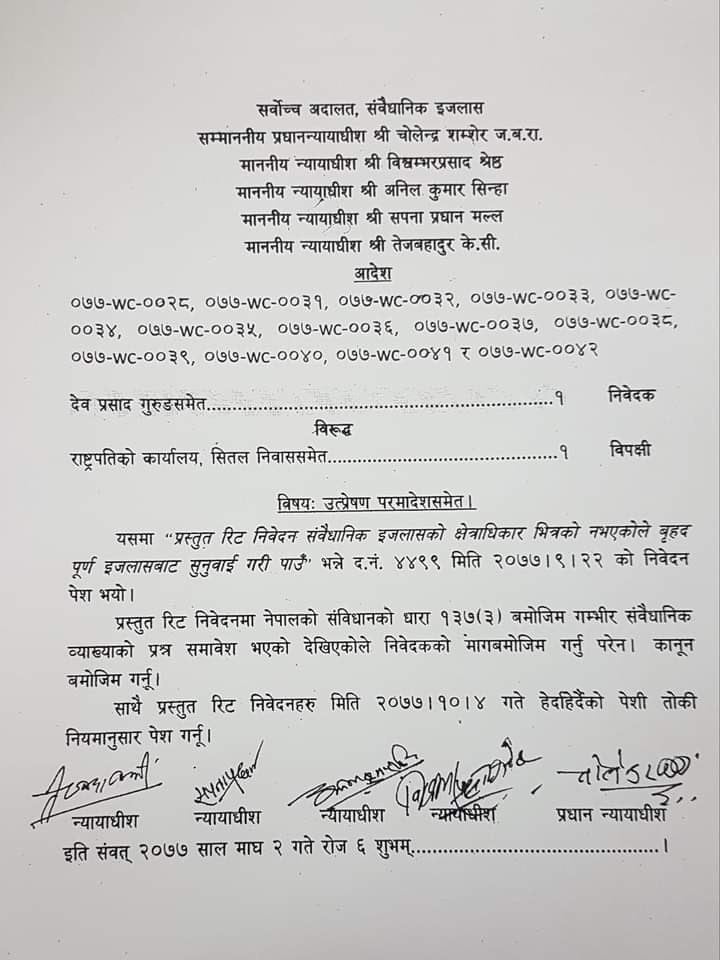 सर्वोच्च अदालत, संवैधानिक इजलास
सम्माननीय प्रधानन्यायाधीश श्री चोलेन्द्र शम्शेर ज.ब.रा.
माननीय न्यायाधीश श्री विश्वम्भरप्रसाद श्रेष्ठ
माननीय न्यायाधीश श्री अनिल कुमार सिन्हा
माननीय न्यायाधीश श्री सपना प्रधान मल्ल
माननीय न्यायाधीश श्री तेजबहादुर के.सी.
आदेश
०७७-WC-००२८, ०७७-WC-००३१, ०७७-WC-००३२, ०७७-WC-००३३, ०७७-WC-
००३४, ०७७-WC-००३५, ०७७-WC-००३६, ०७७-WC-००३७, ०७७-WC-००३८,
०७७-WC-००३९, ०७७-WC-००४०, ०७७-WC-००४१ र ०७७-WC-००४२
देव प्रसाद गुरुङसमेत.................................................................१ निवेदक
विरूद्ध
राष्ट्रपतिको कार्यालय, सितल निवाससमेत...........................................१ विपक्षी
विषयः उत्प्रेषण परमादेशसमेत।
यसमा "प्रस्तुत रिट निवेदन संवैधानिक इजलासको क्षेत्राधिकार भित्रको नभएकोले बृहद
पूर्ण इजलासबाट सुनुवाई गरी पाउँ" भन्ने द.नं. ४४९९ मिति २०७७।९।२२ को निवेदन
पेश भयो।
प्रस्तुत रिट निवेदनमा नेपालको संविधानको धारा १३७(३) बमोजिम गम्भीर संवैधानिक
व्याख्याको प्रश्न समावेश भएको देखिएकोले निवेदकको मागबमोजिम गर्नु परेन। कानून
बमोजिम गर्नू।
साथै प्रस्तुत रिट निवेदनहरु मिति २०७७।१०।४ गते हेर्दाहेर्दैको पेशी तोकी
नियमानुसार पेश गर्नू।
न्यायाधीश न्यायाधीश न्यायाधीश न्यायाधीश प्रधान न्यायाधीश
इति संवत् २०७७ साल माघ २ गते रोज ६ शुभम्..............................................।